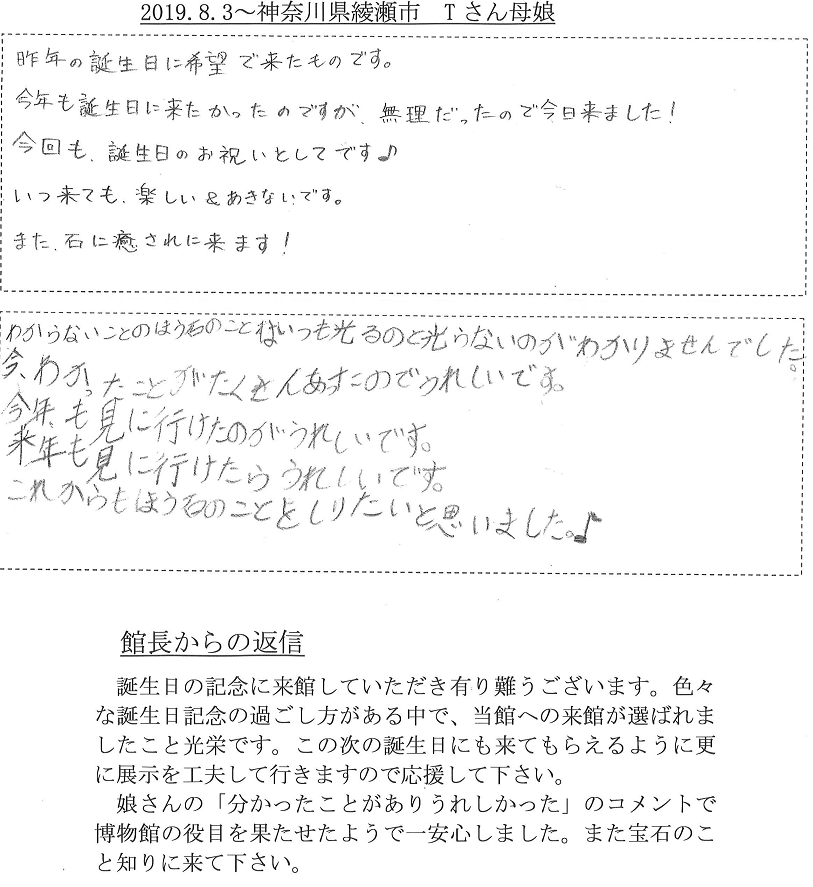 2019.8.3～神奈川県綾瀬市　Tさん母娘
昨年の誕生日に希望で来たものです。
今年も誕生日に来たかったのですが、無理だったので今日来ました！
今回も、誕生日のお祝いとしてです♪
いつ来ても、楽しい＆あきないです。
また、石に癒されに来ます！
わからないことのほう石のことはいつも光るのと光らないのがわかりませんでした。
今、わかったことがたくさんあったのでうれしいです。
今年、も見に行けたのがうれしいです。
来年も見に行けたらうれしいです。
これからもほう石のことをしりたいと思いました。♪
館長からの返信
誕生日の記念に来館していただき有り難うございます。色々
な誕生日記念の過ごし方がある中で、当館への来館が選ばれま
したこと光栄です。この次の誕生日にも来てもらえるように更
に展示を工夫して行きますので応援して下さい。
娘さんの「分かったことがありうれしかった」のコメントで
博物館の役目を果たせたようで一安心しました。また宝石のこ
と知りに来て下さい。